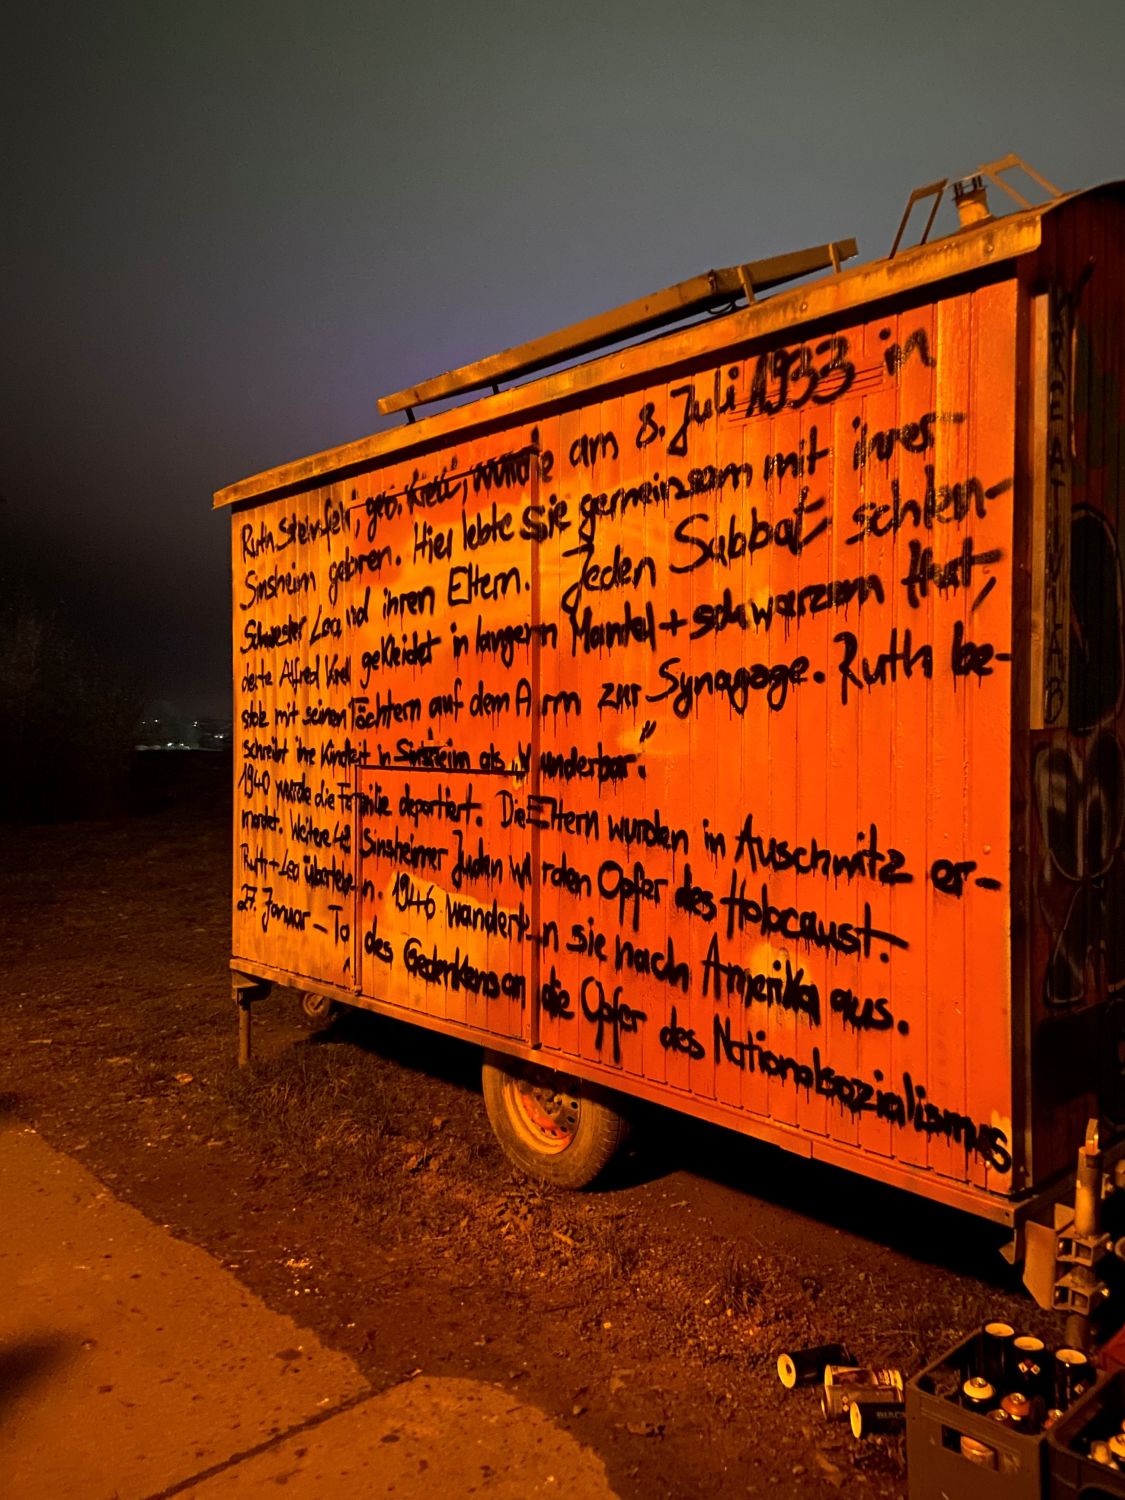 Ruth Steinfeld, geb. Krell, wurde am 8. Juli 1933 in
Sinsheim geboren. Hier lebte sie germeinsam mit ihrer
Schwester Lea und ihren Eltern. Jeden Sabbat schlen-
derte Alfred Krell gekleidet in langem Mantel + schwarzem Hut,
stolz mit seinen Töchtern auf dem Arm zur Synagoge. Ruth be-
schreibt ihre Kindheit in Sinsheim als „Wunderbar."
1940 wurde die Familie deportiert. Die Eltern wurden in Auschwitz er-
mordet. Weitere Sinsheimer Juden wurden Opfer des Holocaust.
Ruth + Lea überlebten. 1946 wanderten sie nach Amerika aus.
27. Januar - Tag des Gedenkens an die Opfer des Nationalsozialismus